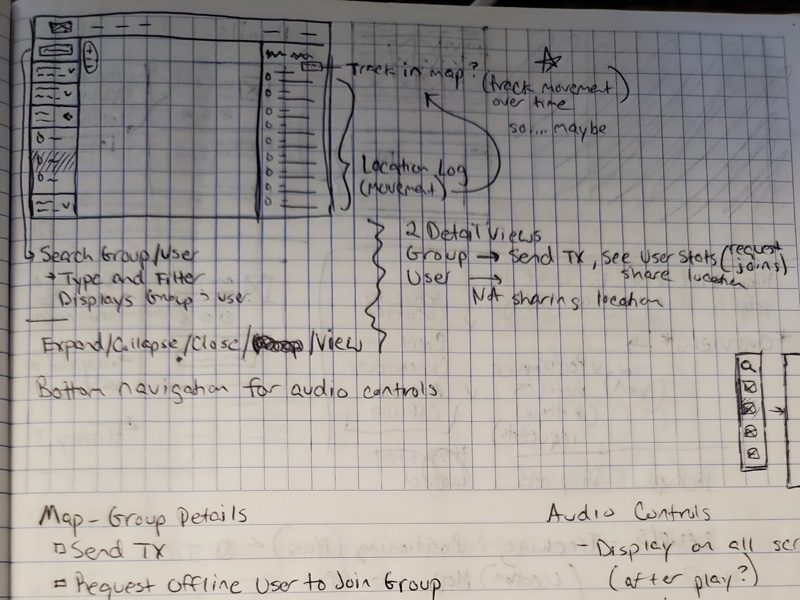 Track in map? (track movement)
over time
so.... maybe
Location Log
(movement)
Search Group/User
→ Type and Filter
Displays Group > user
Expand/Collapse/Close/ /View
Bottom navigation for audio controls
2 Detail Views
Group → Send TX, see user stats (request joins)
share location
User →
NA sharing location
Map - Group Details
Send TX
Request Offline User to Join Group
Audio Controls
- Display on all scr
(after play?)